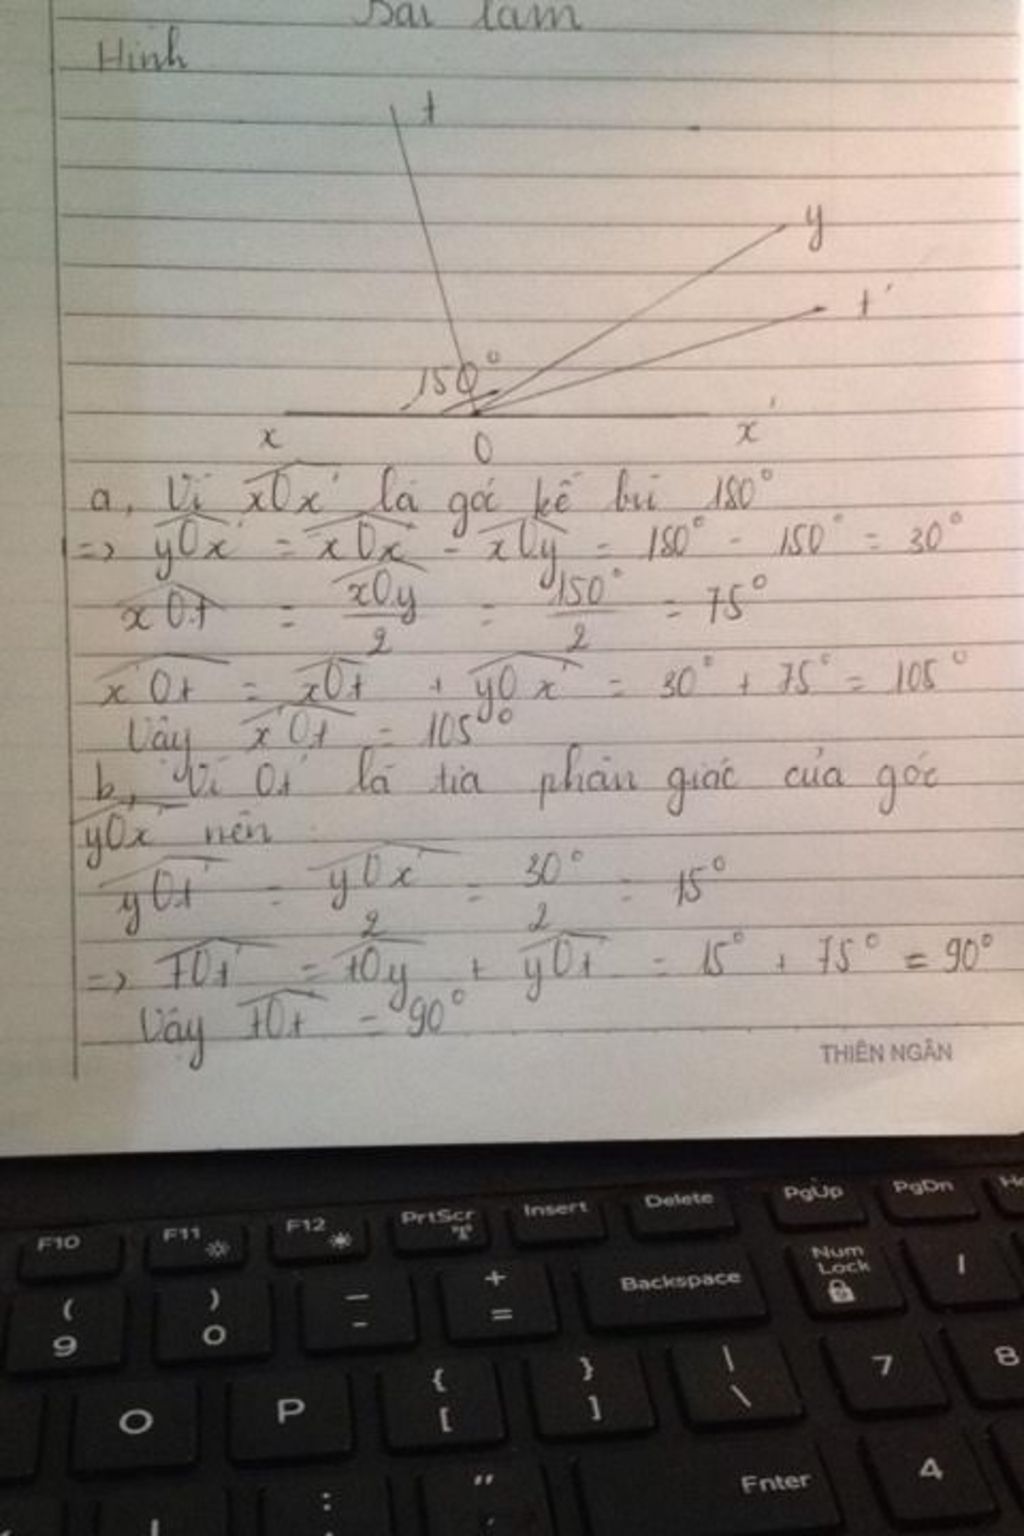 Bài làm
Hình
t
y
t'
150°
x
O
x'
a, Vì xOx' là góc kề bù 180°
=> yOx' = xOx' - xOy = 180° - 150° = 30°
xOt = xOy/2 = 150°/2 = 75°
x'Ot = xOt + yOx' = 30° + 75° = 105°
Vây x'Ot = 105°
b, Vì Ot' là tia phân giác của góc
yOx' nên
yOt' = yOx'/2 = 30°/2 = 15°
=> tOt' = tOy + yOt' = 15° + 75° = 90°
Vây tOt' = 90°
THIÊN NGÂN
F10
F11
F12
PrtScr
Insert
Delete
PgUp
PgDn
( 9
) 0
– -
+ =
Backspace
Num Lock
/
O
P
{ [
} ]
| \
7
8
:
"
Enter
4